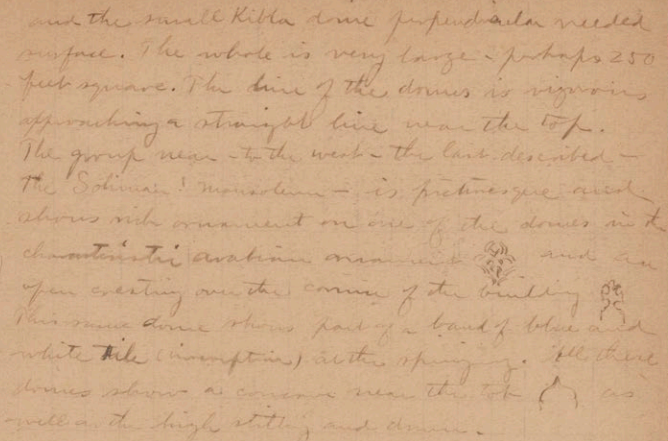 and the small Kibla dome perpendicular needed
surface. The whole is very large - perhaps 250
feet square. The line of the domes is vigorous
approaching a straight line near the top.
The group near - to the west - the last described -
the mausoleum - is picturesque and
shows rich ornament on one of the domes in the
characteristic arabian ornament and an
open cresting over the cornice of the building
This same dome shows part of a band of blue and
white tile (inscription) at the springing. All these
domes show a concave near the top as
well as the high stilting and drum.